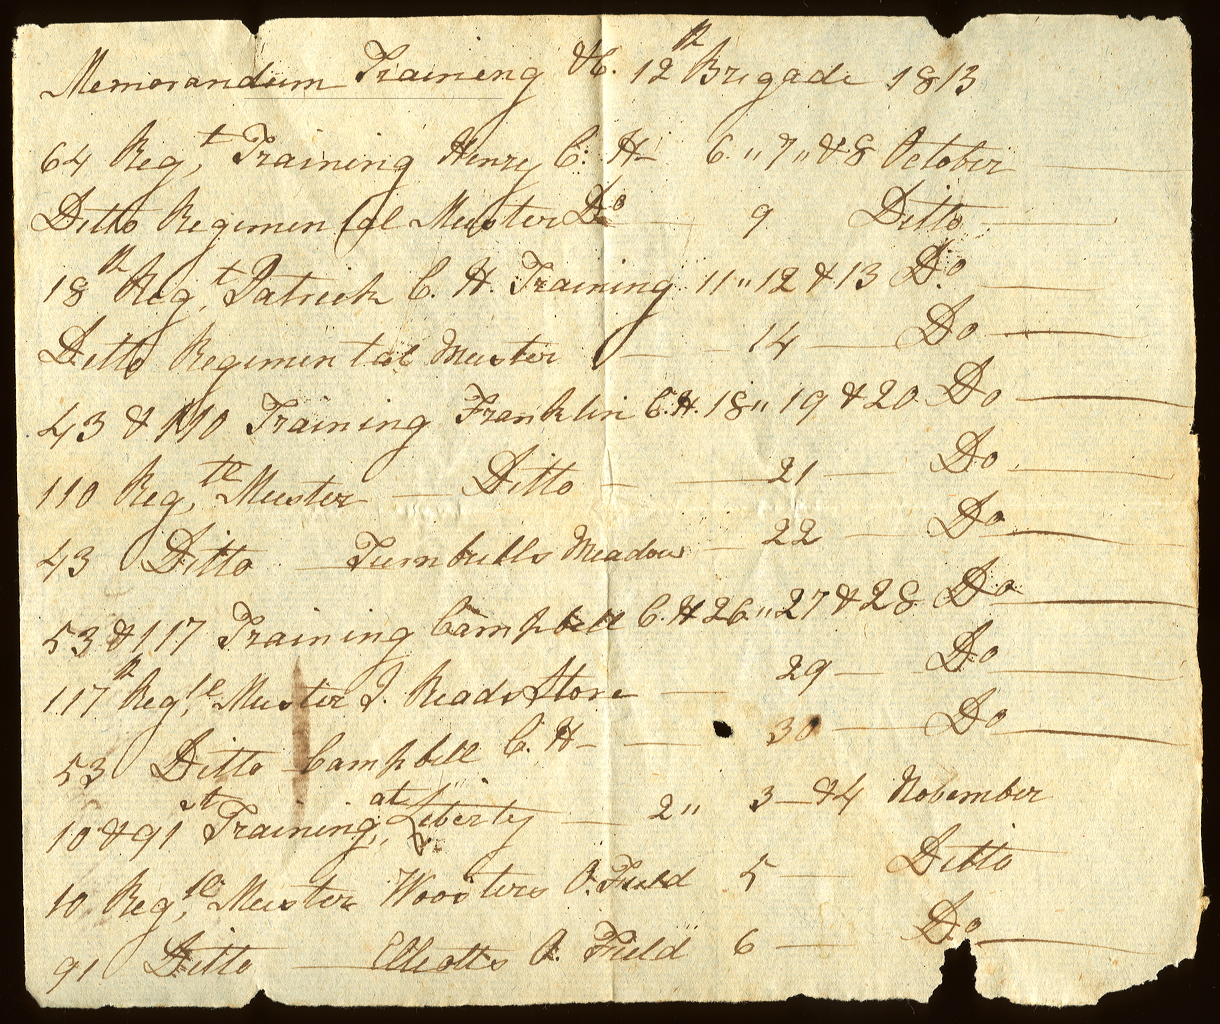 Memorandum Training &c. 12th Brigade 1813
64 Regt. Training Henry C. H— 6 " 7 " & 8 October —
Ditto Regimental Muster Do — 9 Ditto —
18th Regt. Patrick C. H. Training 11 " 12 & 13 Do. —
Ditto Regimental Muster — 14 — Do —
43 & 110 Training Franklin C. H. 18 " 19 & 20 Do —
110 Regtl. Muster — Ditto — 21 — Do —
43 Ditto — Turnbulls Meadow — 22 — Do —
53 & 117 Training Campbell C. H 26 " 27 & 28 Do —
117th Regtl. Muster J. Reads Store — 29 — Do —
53 Ditto Campbell C. H — 30 — Do —
10 & 91st Training, at Liberty — 2 " 3 — & 4 November
10 Regtl. Muster Wooters O. Field 5 — Ditto
91 Ditto — Elliotts O. Field 6 — Do —